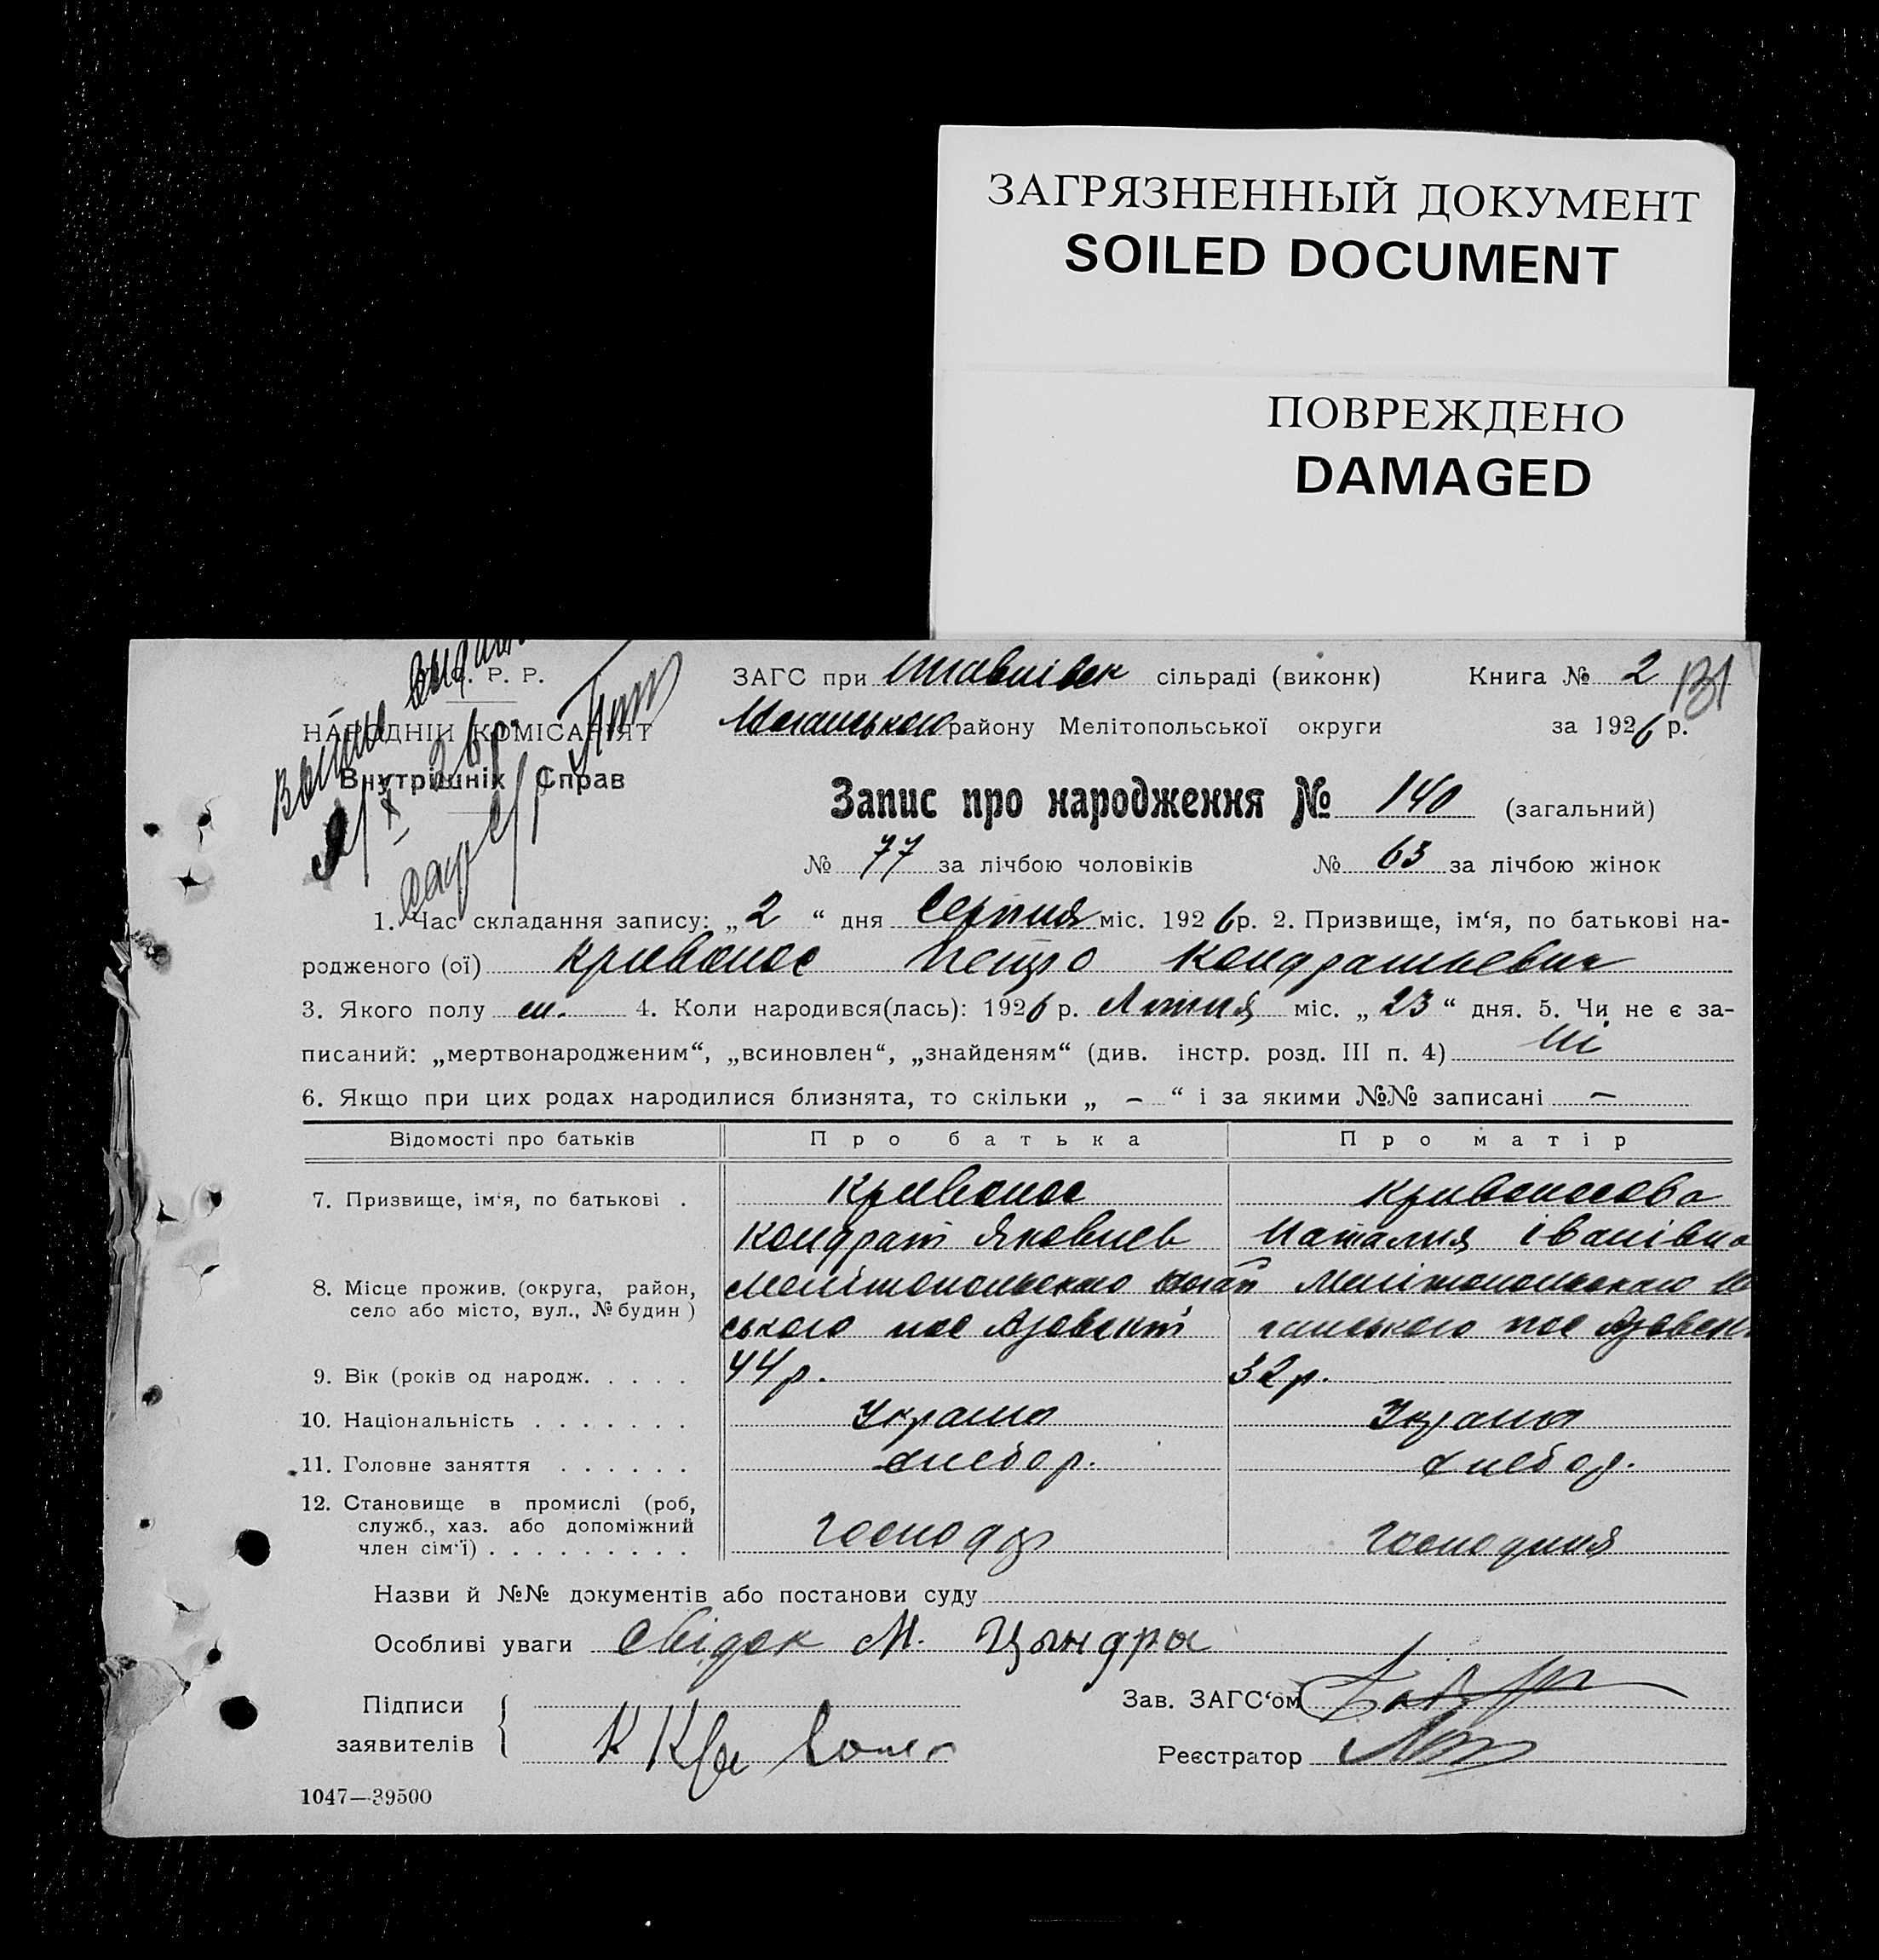 ЗАГРЯЗНЕННЫЙ ДОКУМЕНТ
SOILED DOCUMENT
ПОВРЕЖДЕНО
DAMAGED
Р. Р.
НАРОДНІЙ КОМІСАРІЯТ
Внутрішніх Справ
ЗАГС при сільраді (виконк) Книга № 2 131
району Мелітопольської округи за 1926 р.
Запис про народження № 140 (загальний)
№ 77 за лічбою чоловіків № 63 за лічбою жінок
1. Час складання запису: „2“ дня Серпня міс. 1926 р. 2. Призвище, ім‘я, по батькові на-
родженого (ої) Кривонос Петро Кондратьевич
3. Якого полу 4. Коли народився(лась): 1926 р. Липня міс. „23“ дня. 5. Чи не є за-
писаний: „мертвонародженим“, „всиновлен“, „знайденям“ (див. інстр. розд. III п. 4) Ні
6. Якщо при цих родах народилися близнята, то скільки „ – “ і за якими №№ записані –
Відомості про батьків Про батька Про матір
7. Призвище, ім‘я, по батькові . Кривонос Кривоносова
Кондрат Яковлев Наталия Іванівна
8. Місце прожив. (округа, район, Мелітопольского Мелітопольского
село або місто, вул., № будин ) ського пос ганського пос
9. Вік (років од народж. . . . . 44 р. 32 р.
10. Національність . . . . . . . Украин Украин
11. Головне заняття . . . . . . хлебор. хлебор.
12. Становище в промислі (роб,
служб., хаз. або допоміжний
член сім‘ї) . . . . . . . . . Господар Господиня
Назви й №№ документів або постанови суду
Особливі уваги Свідок М. Цындра
Підписи
заявителів К Кривонос
Зав. ЗАГС‘ом
Реєстратор
1047—39500